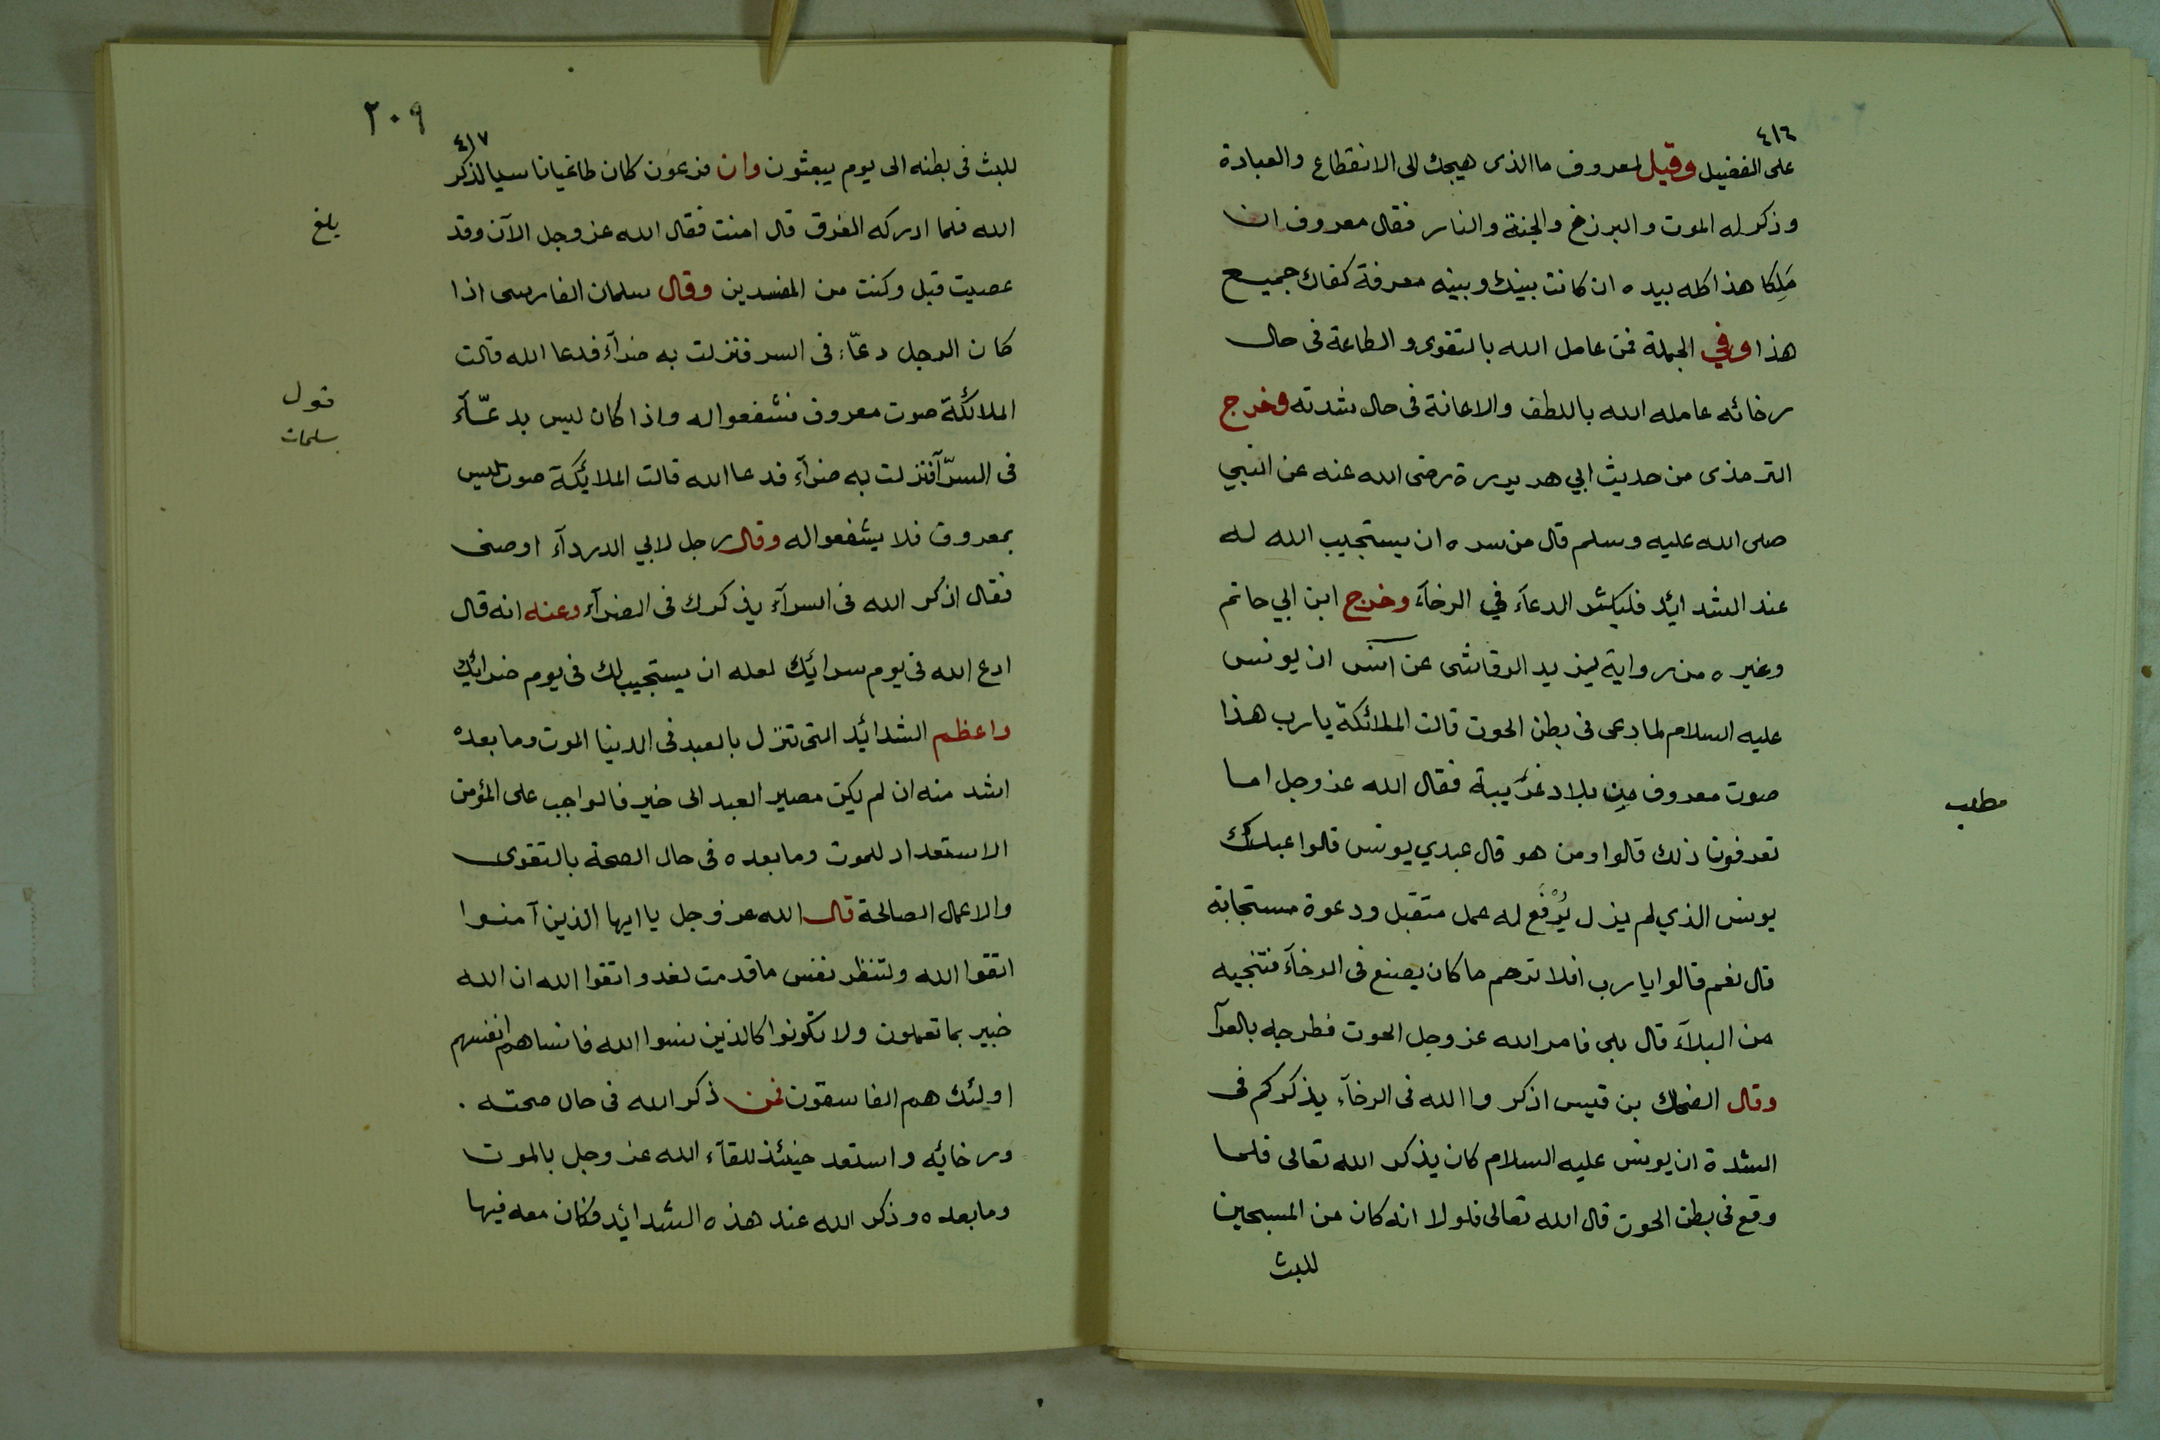 ٤١٦
على الفضيل وقيل لمعروف ما الذى هيجك الى الانقطاع والعبادة
وذكر له الموت والبرزخ والجنة والنار فقال معروف ان
مَلِكا هذا كله بيده ان كانت بينك وبينه معرفة كفاك جميع
هذا وفي الجملة فمن عامل الله بالتقوى والطاعة فى حال
رخائه عامله الله باللطف والاعانة فى حال شدته وخرج
الترمذى من حديث ابي هريرة رضى الله عنه عن النبي
صلى الله عليه وسلم قال من سره ان يستجيب الله له
عند الشدائد فليكثر الدعآء في الرخآء وخرج ابن ابي حاتم
وغيره من رواية يزيد الرقاشى عن انس ان يونس
عليه السلام لما دعى فى بطن الحوت قالت الملائكة يارب هذا
صوت معروف مِن بلاد غَرِيبة فقال الله عز وجل اما
تعرفون ذلك قالوا ومن هو قال عبدي يونس قالوا عبدك
يونس الذي لم يزل يُرْفَع له عمل متقبل ودعوة مستجابة
قال نعم قالوا يارب افلا ترحم ما كان يصنع فى الرخآء فتنجيه
من البلآء قال بلى فامر الله عز وجل الحوت فطرحه بالعرآ
وقال الضحاك بن قيس اذكروا الله فى الرخآء يذكركم فى
الشدة ان يونس عليه السلام كان يذكر الله تعالى فلما
وقع فى بطن الحوت قال الله تعالى فلولا انه كان من المسبحين
للبث
مطلب
٢٠٩
٤١٧
للبث فى بطنه الى يوم يبعثون وان فرعون كان طاغيا ناسيا لذكر
الله فلما ادركه الغرق قال امنت فقال الله عز وجل الآن وقد
عصيت قبل وكنت من المفسدين وقال سلمان الفارسى اذا
كان الرجل دعّآء فى السر فنزلت به ضرآء فدعا الله قالت
الملائكة صوت معروف فشفعوا له واذا كان ليس بدعّآء
فى السرّآ فنزلت به ضرآء فدعا الله قالت الملائكة صوت ليس
بمعروف فلا يشفعوا له وقال رجل لابي الدردآء اوصنى
فقال اذكر الله فى السرآء يذكرك فى الضرآء وعنه انه قال
ادع الله فى يوم سرائك لعله ان يستجيب لك فى يوم ضرائك
واعظم الشدائد التى تنزل بالعبد فى الدنيا الموت وما بعده
اشد منه ان لم يكن مصير العبد الى خير فالواجب على المؤمن
الاستعداد للموت وما بعده فى حال الصحة بالتقوى
والاعمال الصالحة قال الله عز وجل يا ايها الذين آمنوا
اتقوا الله ولتنظر نفس ما قدمت لغد واتقوا الله ان الله
خبير بما تعملون ولا تكونوا كالذين نسوا الله فانساهم انفسهم
اولئك هم الفاسقون فمن ذكر الله فى حال صحته .
ورخائه واستعد حينئذ للقآء الله عز وجل بالموت
وما بعده وذكر الله عند هذه الشدائد فكان معه فيها
بلغ
قول
سلمان